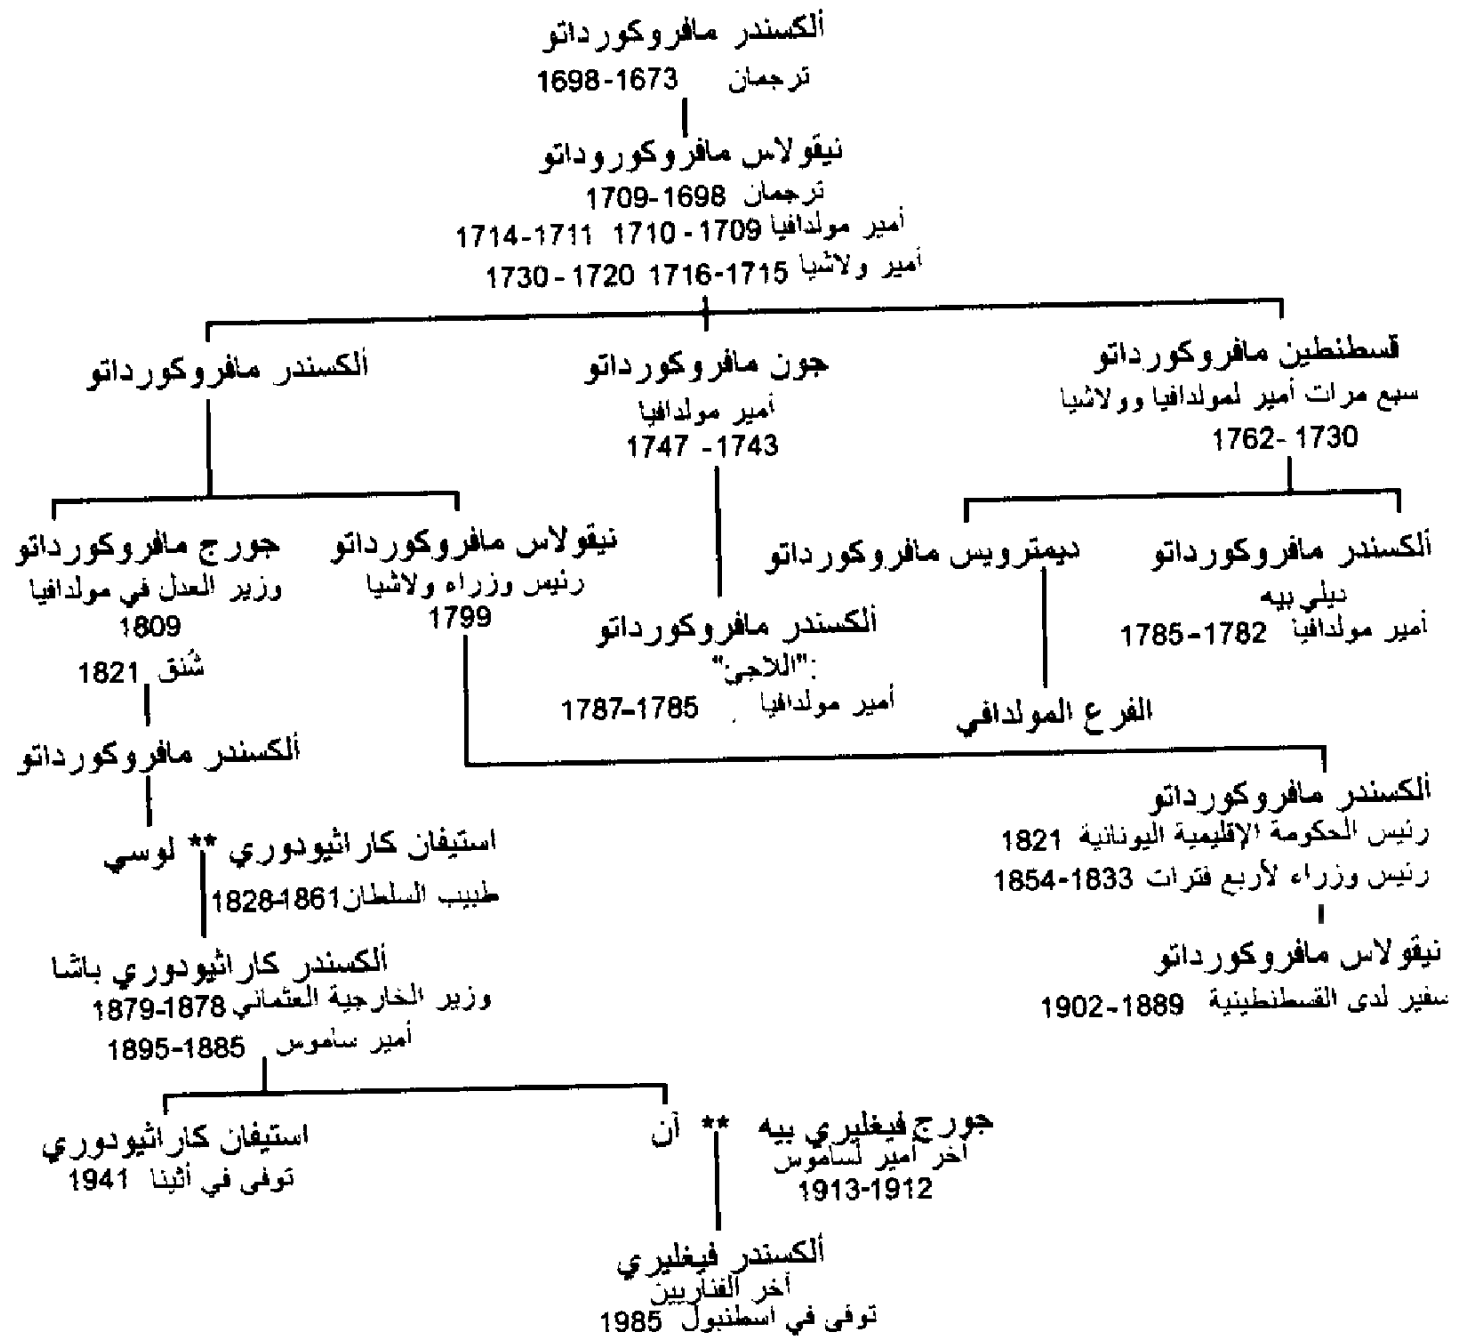 ألكسندر مافروكورداتو
ترجمان 1673-1698
نيقولاس مافروكوروداتو
ترجمان 1698-1709
أمير مولدافيا 1709 - 1710 1711-1714
أمير ولاشيا 1715-1716 1720 - 1730
قسطنطين مافروكورداتو
سبع مرات أمير لمولدافيا وولاشيا
1730 -1762
جون مافروكورداتو
أمير مولدافيا
1743- 1747
ألكسندر مافروكورداتو
ألكسندر مافروكورداتو
ديلي بيه
أمير مولدافيا 1782-1785
ديمترويس مافروكورداتو
الفرع المولدافي
ألكسندر مافروكورداتو
:"اللاجئ"
أمير مولدافيا 1785-1787
نيقولاس مافروكورداتو
رئيس وزراء ولاشيا
1799
جورج مافروكورداتو
وزير العدل في مولدافيا
1809
شُنق 1821
ألكسندر مافروكورداتو
رئيس الحكومة الإقليمية اليونانية 1821
رئيس وزراء لأربع فترات 1833-1854
نيقولاس مافروكورداتو
سفير لدى القسطنطينية 1889-1902
ألكسندر مافروكورداتو
استيفان كاراثيودوري ** لوسي
طبيب السلطان 1861-1828
ألكسندر كاراثيودوري باشا
وزير الخارجية العثماني 1878-1879
أمير ساموس 1885-1895
جورج فيغليري بيه ** آن
آخر أمير لساموس
1912-1913
استيفان كاراثيودوري
توفى في أثينا 1941
ألكسندر فيغليري
آخر الفناريين
توفى في اسطنبول 1985